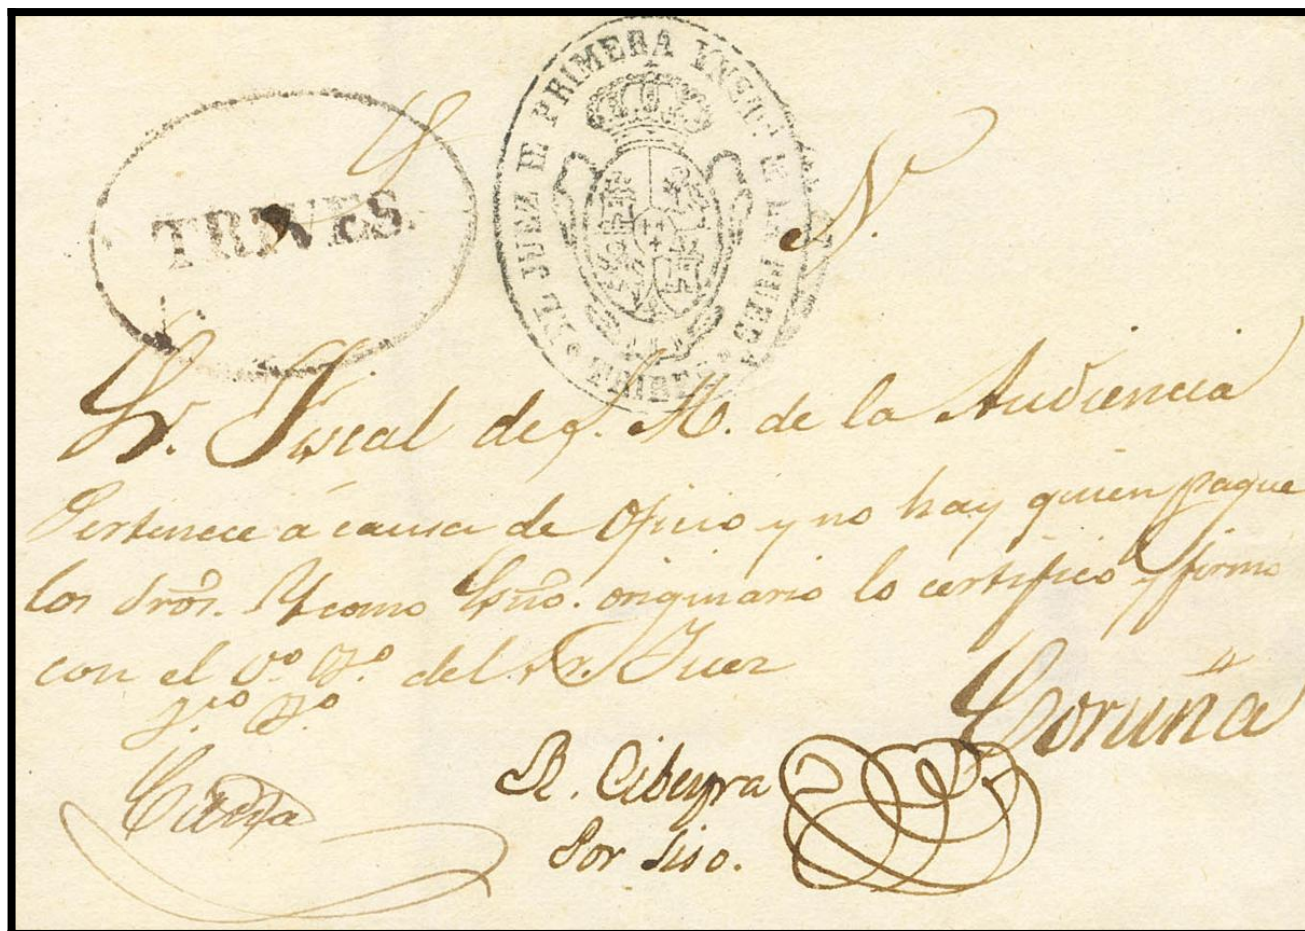 TRIVES.
JUEZ DE PRIMERA INST.
N.
Sr. Fiscal de S. M. de la Audiencia
Pertenece á causa de Oficio y no hay quien pague
los dros. Y como Esño. originario lo certifico y firmo
con el Vº Bº del Sr. Juez
Bº
Coruña
R. Cibeyra